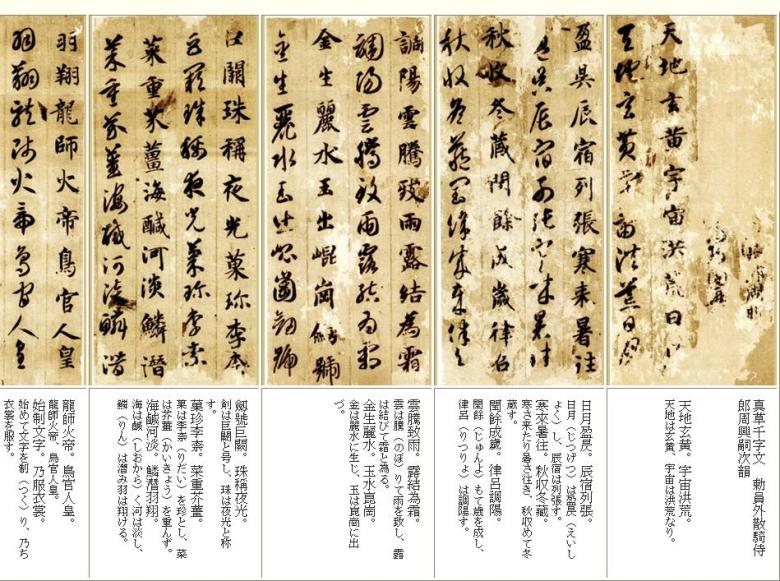 天地玄黄宇宙洪荒日月
天地玄黄宇宙洪荒日月
盈昃辰宿列張寒来暑往
盈昃辰宿列張寒来暑往
秋收冬藏閏餘成歲律呂
秋收冬藏閏餘成歲律呂
調陽雲騰致雨露結為霜
調陽雲騰致雨露結為霜
金生麗水玉出崐崗劔號
金生麗水玉出崐崗劔號
巨闕珠稱夜光菓珍李柰
巨闕珠稱夜光菓珍李柰
菜重芥薑海醎河淡鱗潜
菜重芥薑海醎河淡鱗潜
羽翔龍師火帝鳥官人皇
羽翔龍師火帝鳥官人皇
真草千字文 勅員外散騎侍
郎周興嗣次韻
天地玄黄。宇宙洪荒。
天地は玄黄、宇宙は洪荒なり。
日月盈昃。辰宿列張。
日月（じつげつ）は盈昃（えいし
ょく）し、辰宿は列張す。
寒來暑往。秋収冬藏。
寒さ来たり暑さ往き、秋収めて冬
蔵す。
閏餘成歲。律呂調陽。
閏餘（じゅんよ）もて歳を成し、
律呂（りつりょ）は調陽す。
雲騰致雨。露結為霜。
雲は騰（のぼ）りて雨を致し、露
は結びて霜と為る。
金生麗水。玉水崑崗。
金は麗水に生じ、玉は崑崗に出
づ。
劔號巨闕。珠稱夜光。
剣は巨闕と号し、珠は夜光と称
す。
菓珍李柰。菜重芥薑。
菓は李柰（りだい）を珍とし、菜
は芥薑（かいきょう）を重んず。
海鹹河淡。鱗潛羽翔。
海は鹹（しおから）く河は淡し、
鱗（りん）は潜み羽は翔ける。
龍師火帝。鳥官人皇。
龍師火帝、鳥官人皇。
始制文字。乃服衣裳。
始めて文字を制（つく）り、乃ち
衣裳を服す。